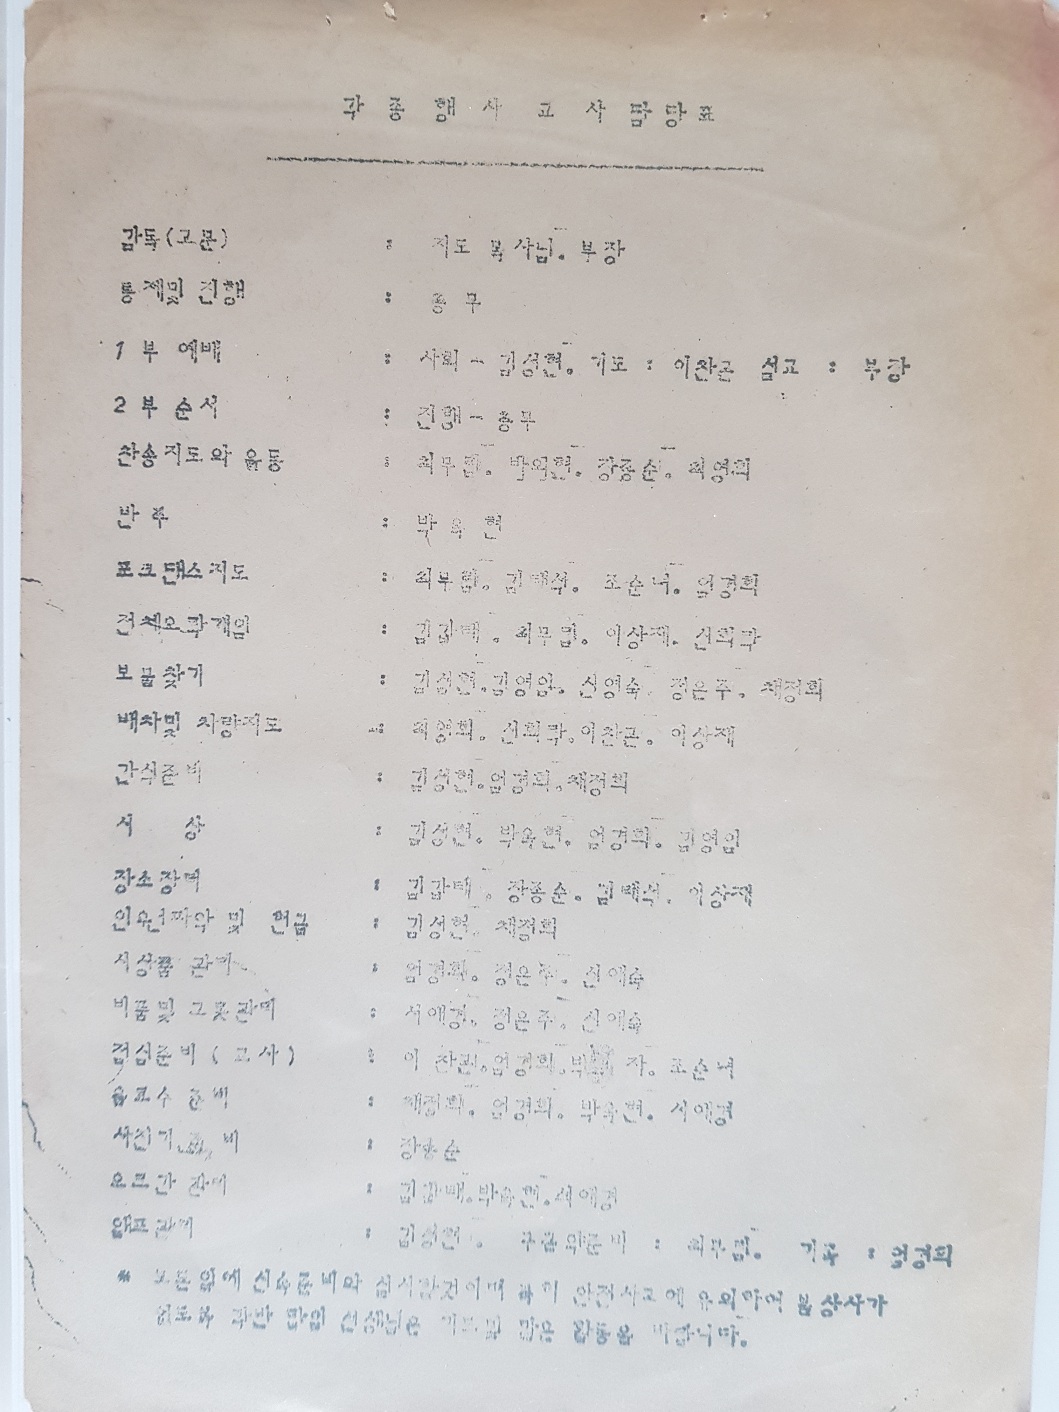 각 종 행 사 교 사 담 당 표
감독(고문) : 지도 목사님. 부장
통제및 진행 : 총 무
1 부 예배 : 사회 - 김성현. 기도 : 이찬근 설교 : 부장
2 부 순서 : 진행 - 총무
찬송지도와 율동 : 최무림. 박옥현. 장종순. 최영희
반 주 : 박 옥 현
포크댄스지도 : 최무림. 김태석. 조순녀. 엄경희
전체오락게임 : 김갑태. 최무림. 이상재. 신희락
보물찾기 : 김성현.김영임. 신영숙. 정은주. 채정희
배차및 차량지도 : 최영희. 신희락.이찬근. 이상재
간식준비 : 김성현.엄경희.채정희
시 상 : 김성현. 박옥현. 엄경희. 김영임
장소정리 : 김갑태. 장종순. 김태석. 이상재
인원파악 및 헌금 : 김성현. 채정희
시상품 관리 : 엄경희. 정은주. 신애숙
비품및 그릇관리 : 서애경. 정은주. 신애숙
점심준비 ( 교 사 ) : 이 찬근.엄경희. 조순녀
음료수 준비 : 채정희. 엄경희. 박옥현. 서애경
사진기 준비 : 장종순
오르간 관리 : 김갑태.박옥현.서애경
앰프관리 : 김성현. 구급약준비 : 최무림. 기록 : 엄경희
* 본분외에 안전사고에 유의하여 불상사가
없도록 바랍니다.